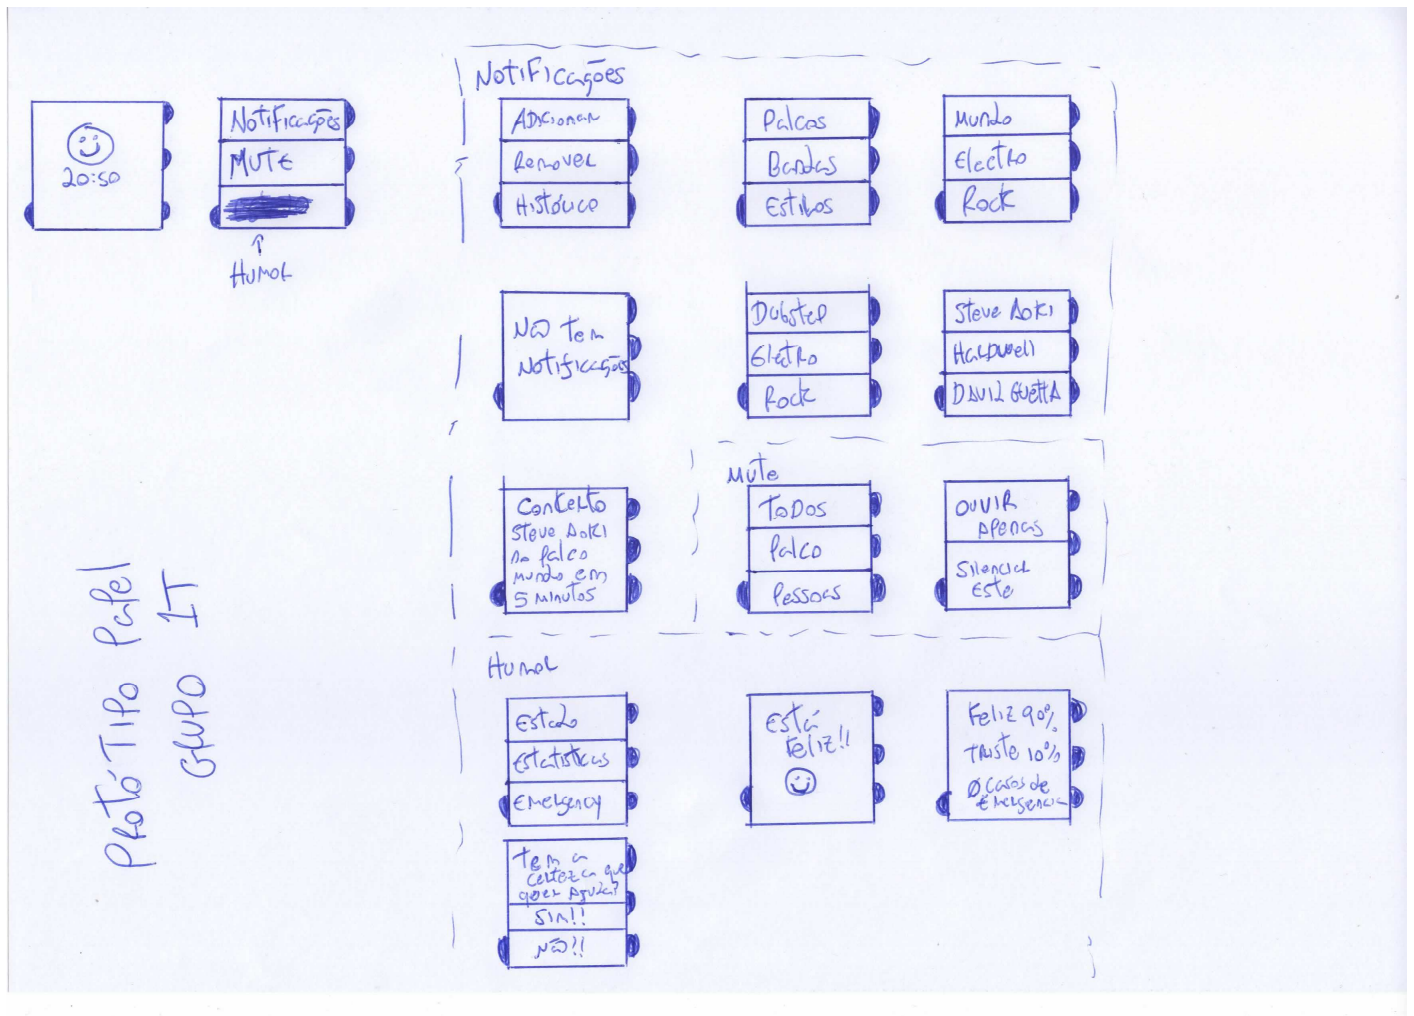 20:50
Notificações
Mute
Humor
Notificações
Adicionar
Remover
Histórico
Palcos
Bandas
Estilos
Mundo
Electro
Rock
Não tem
Notificações
Dubstep
Eletro
Rock
Steve Aoki
Hardwell
David Guetta
Concerto
Steve Aoki
no palco
mundo em
5 minutos
Mute
Todos
Palco
Pessoas
Ouvir
Apenas
Silenciar
Este
Humor
Estado
Estatisticas
Emergency
Está
Feliz!!
Feliz 90%
Triste 10%
0 casos de
Emergencia
Tem a
certeza que
quer Ajuda?
Sim!!
Não!!
Protótipo Papel
Grupo IT